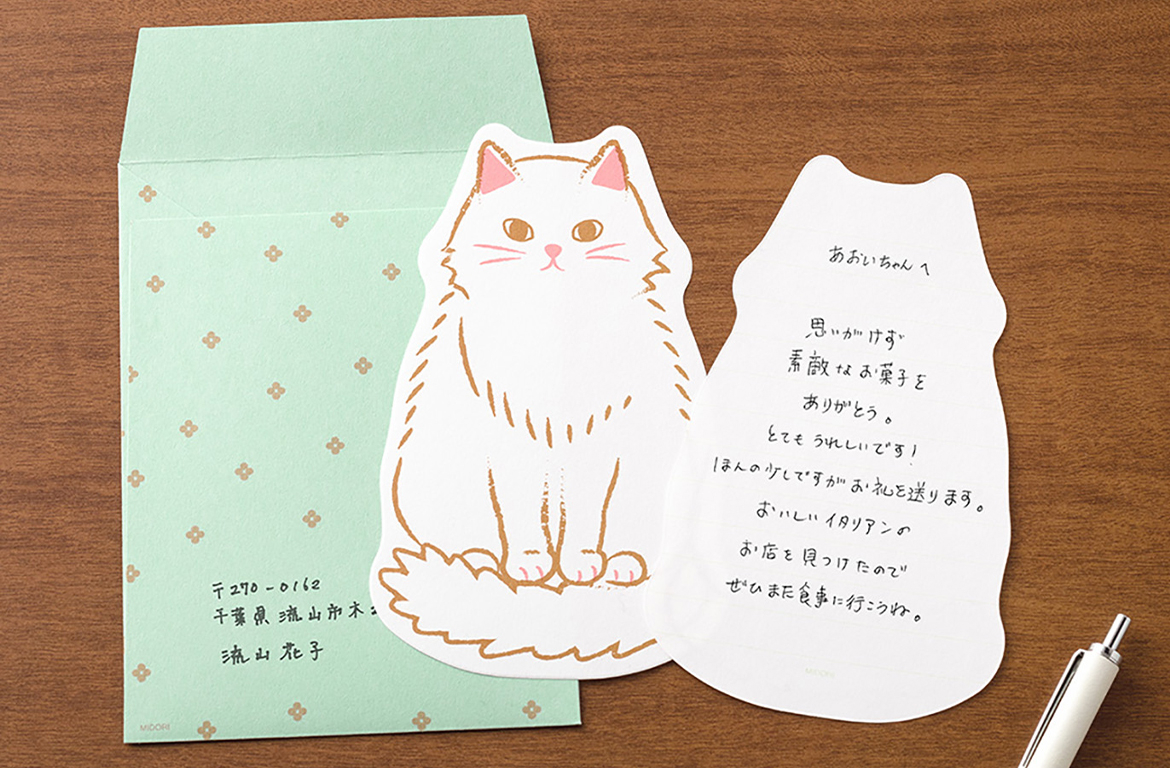 〒270-0162
千葉県流山市木
流山花子
MIDORI
あおいちゃんへ
思いがけず
素敵なお菓子を
ありがとう。
とてもうれしいです!
ほんの少しですがお礼を送ります。
おいしいイタリアンの
お店を見つけたので
ぜひまた食事に行こうね。
MIDORI